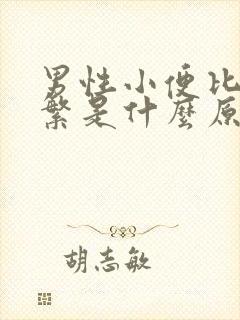 男性小便比
繁是什麼原
胡志敏